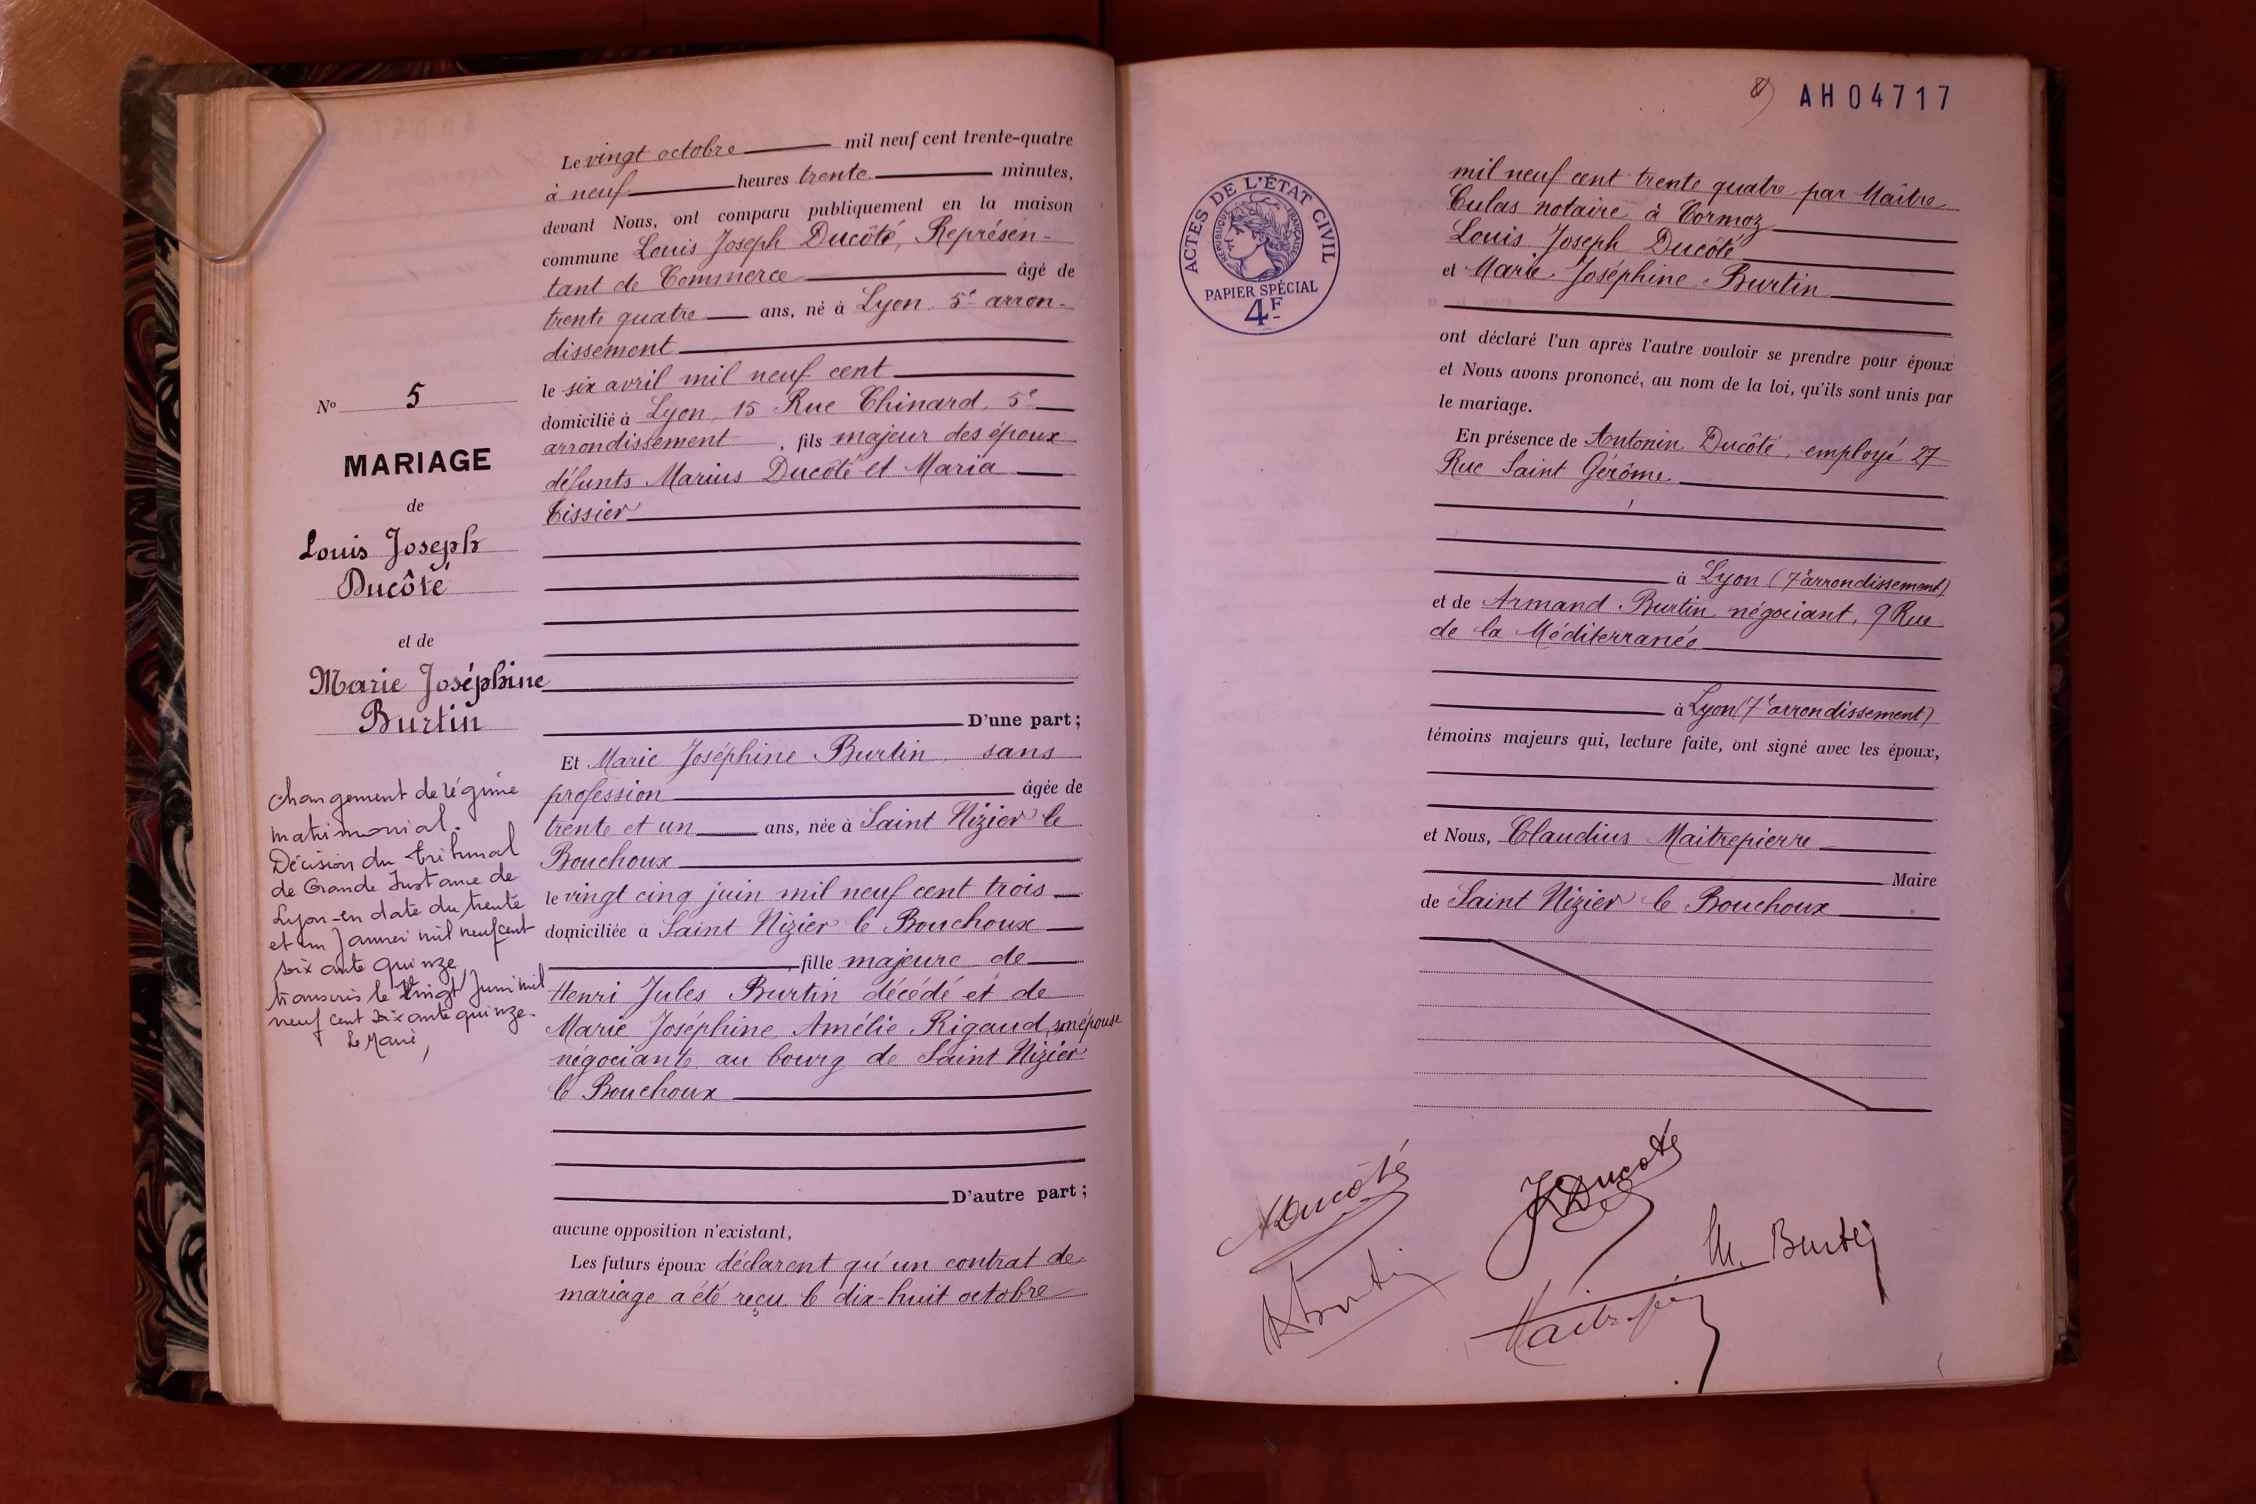 Le vingt octobre mil neuf cent trente-quatre
à neuf heures trente minutes,
devant Nous, ont comparu publiquement en la maison
commune Louis Joseph Ducôté, Représen-
tant de Commerce âgé de
trente quatre ans, né à Lyon 5e arron-
dissement
le six avril mil neuf cent
domicilié à Lyon, 15 Rue Chinard, 5e
arrondissement, fils majeur des époux
défunts Marius Ducôté et Maria
Tissier
D'une part;
Et Marie Joséphine Burtin, sans
profession âgée de
trente et un ans, née à Saint Nizier le
Bouchoux
le vingt cinq juin mil neuf cent trois
domiciliée à Saint Nizier le Bouchoux
, fille majeure de
Henri Jules Burtin décédé et de
Marie Joséphine Amélie Rigaud, son épouse
négociante au bourg de Saint Nizier
le Bouchoux
D'autre part;
aucune opposition n'existant,
Les futurs époux déclarent qu'un contrat de
mariage a été reçu le dix-huit octobre
No 5
MARIAGE
de
Louis Joseph
Ducôté
et de
Marie Joséphine
Burtin
changement de régime
matrimonial.
Décision du tribunal
de Grande Instance de
Lyon en date du trente
et un Janvier mil neuf cent
soixante quinze
transcris le vingt Juin mil
neuf cent soixante quinze.
Le Maire,
AH04717
ACTES DE L'ÉTAT CIVIL
RÉPUBLIQUE FRANÇAISE
PAPIER SPÉCIAL
4F
mil neuf cent trente quatre par Maître
Culas notaire à Cormoz
Louis Joseph Ducôté
et Marie Joséphine Burtin
ont déclaré l'un après l'autre vouloir se prendre pour époux
et Nous avons prononcé, au nom de la loi, qu'ils sont unis par
le mariage.
En présence de Antonin Ducôté, employé 27
Rue Saint Gérôme
à Lyon (7e arrondissement)
et de Armand Burtin négociant, 9 Rue
de la Méditerranée
à Lyon (7e arrondissement)
témoins majeurs qui, lecture faite, ont signé avec les époux,
et Nous, Claudius Maitrepierre
Maire
de Saint Nizier le Bouchoux
A Ducôté
J Ducoté
M. Burtin
A Burtin
Maitrepierre